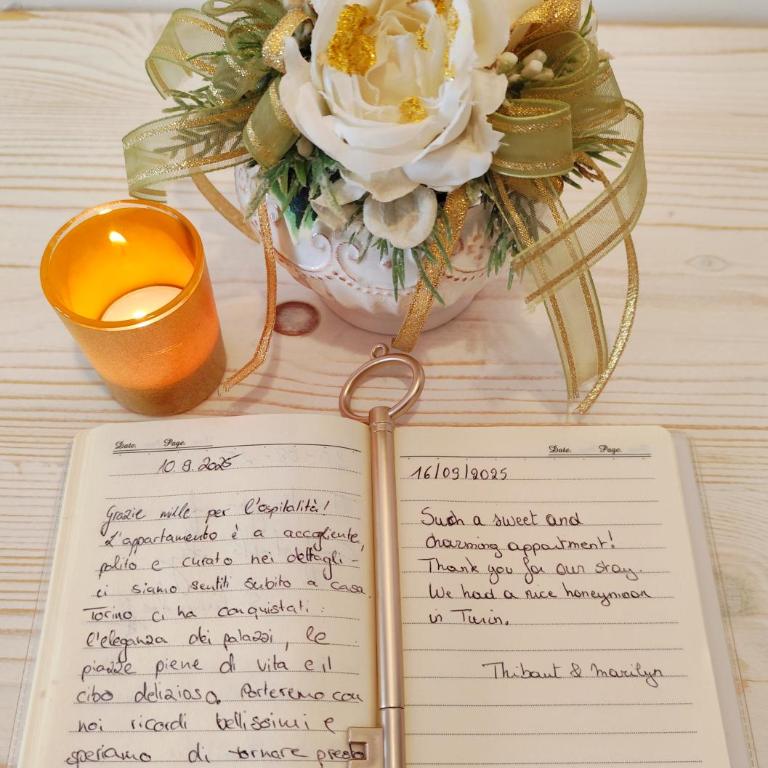 Date. Page.
10.9.2025
Grazie mille per l'ospitalità!
L'appartamento è a accogliente,
pulito e curato nei dettagli -
ci siamo sentiti subito a casa.
Torino ci ha conquistati :
l'eleganza dei palazzi, le
piazze piene di vita e il
cibo delizioso. Porteremo con
noi ricordi bellissimi e
speriamo di tornare presto
Date. Page.
16/09/2025
Such a sweet and
charming appartment!
Thank you for our stay.
We had a nice honeymoon
in Turin.
Thibaut & Marilyn